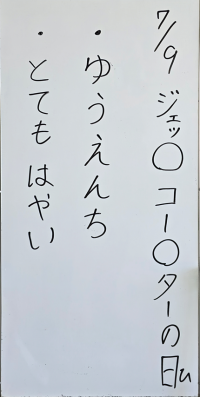 7/9 ジェッ〇コー〇ターの日
・ゆうえんち
・とても はやい